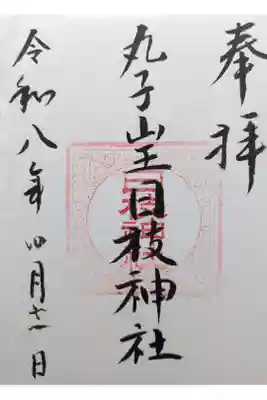 奉拝
丸子山王日枝神社
令和八年四月十一日